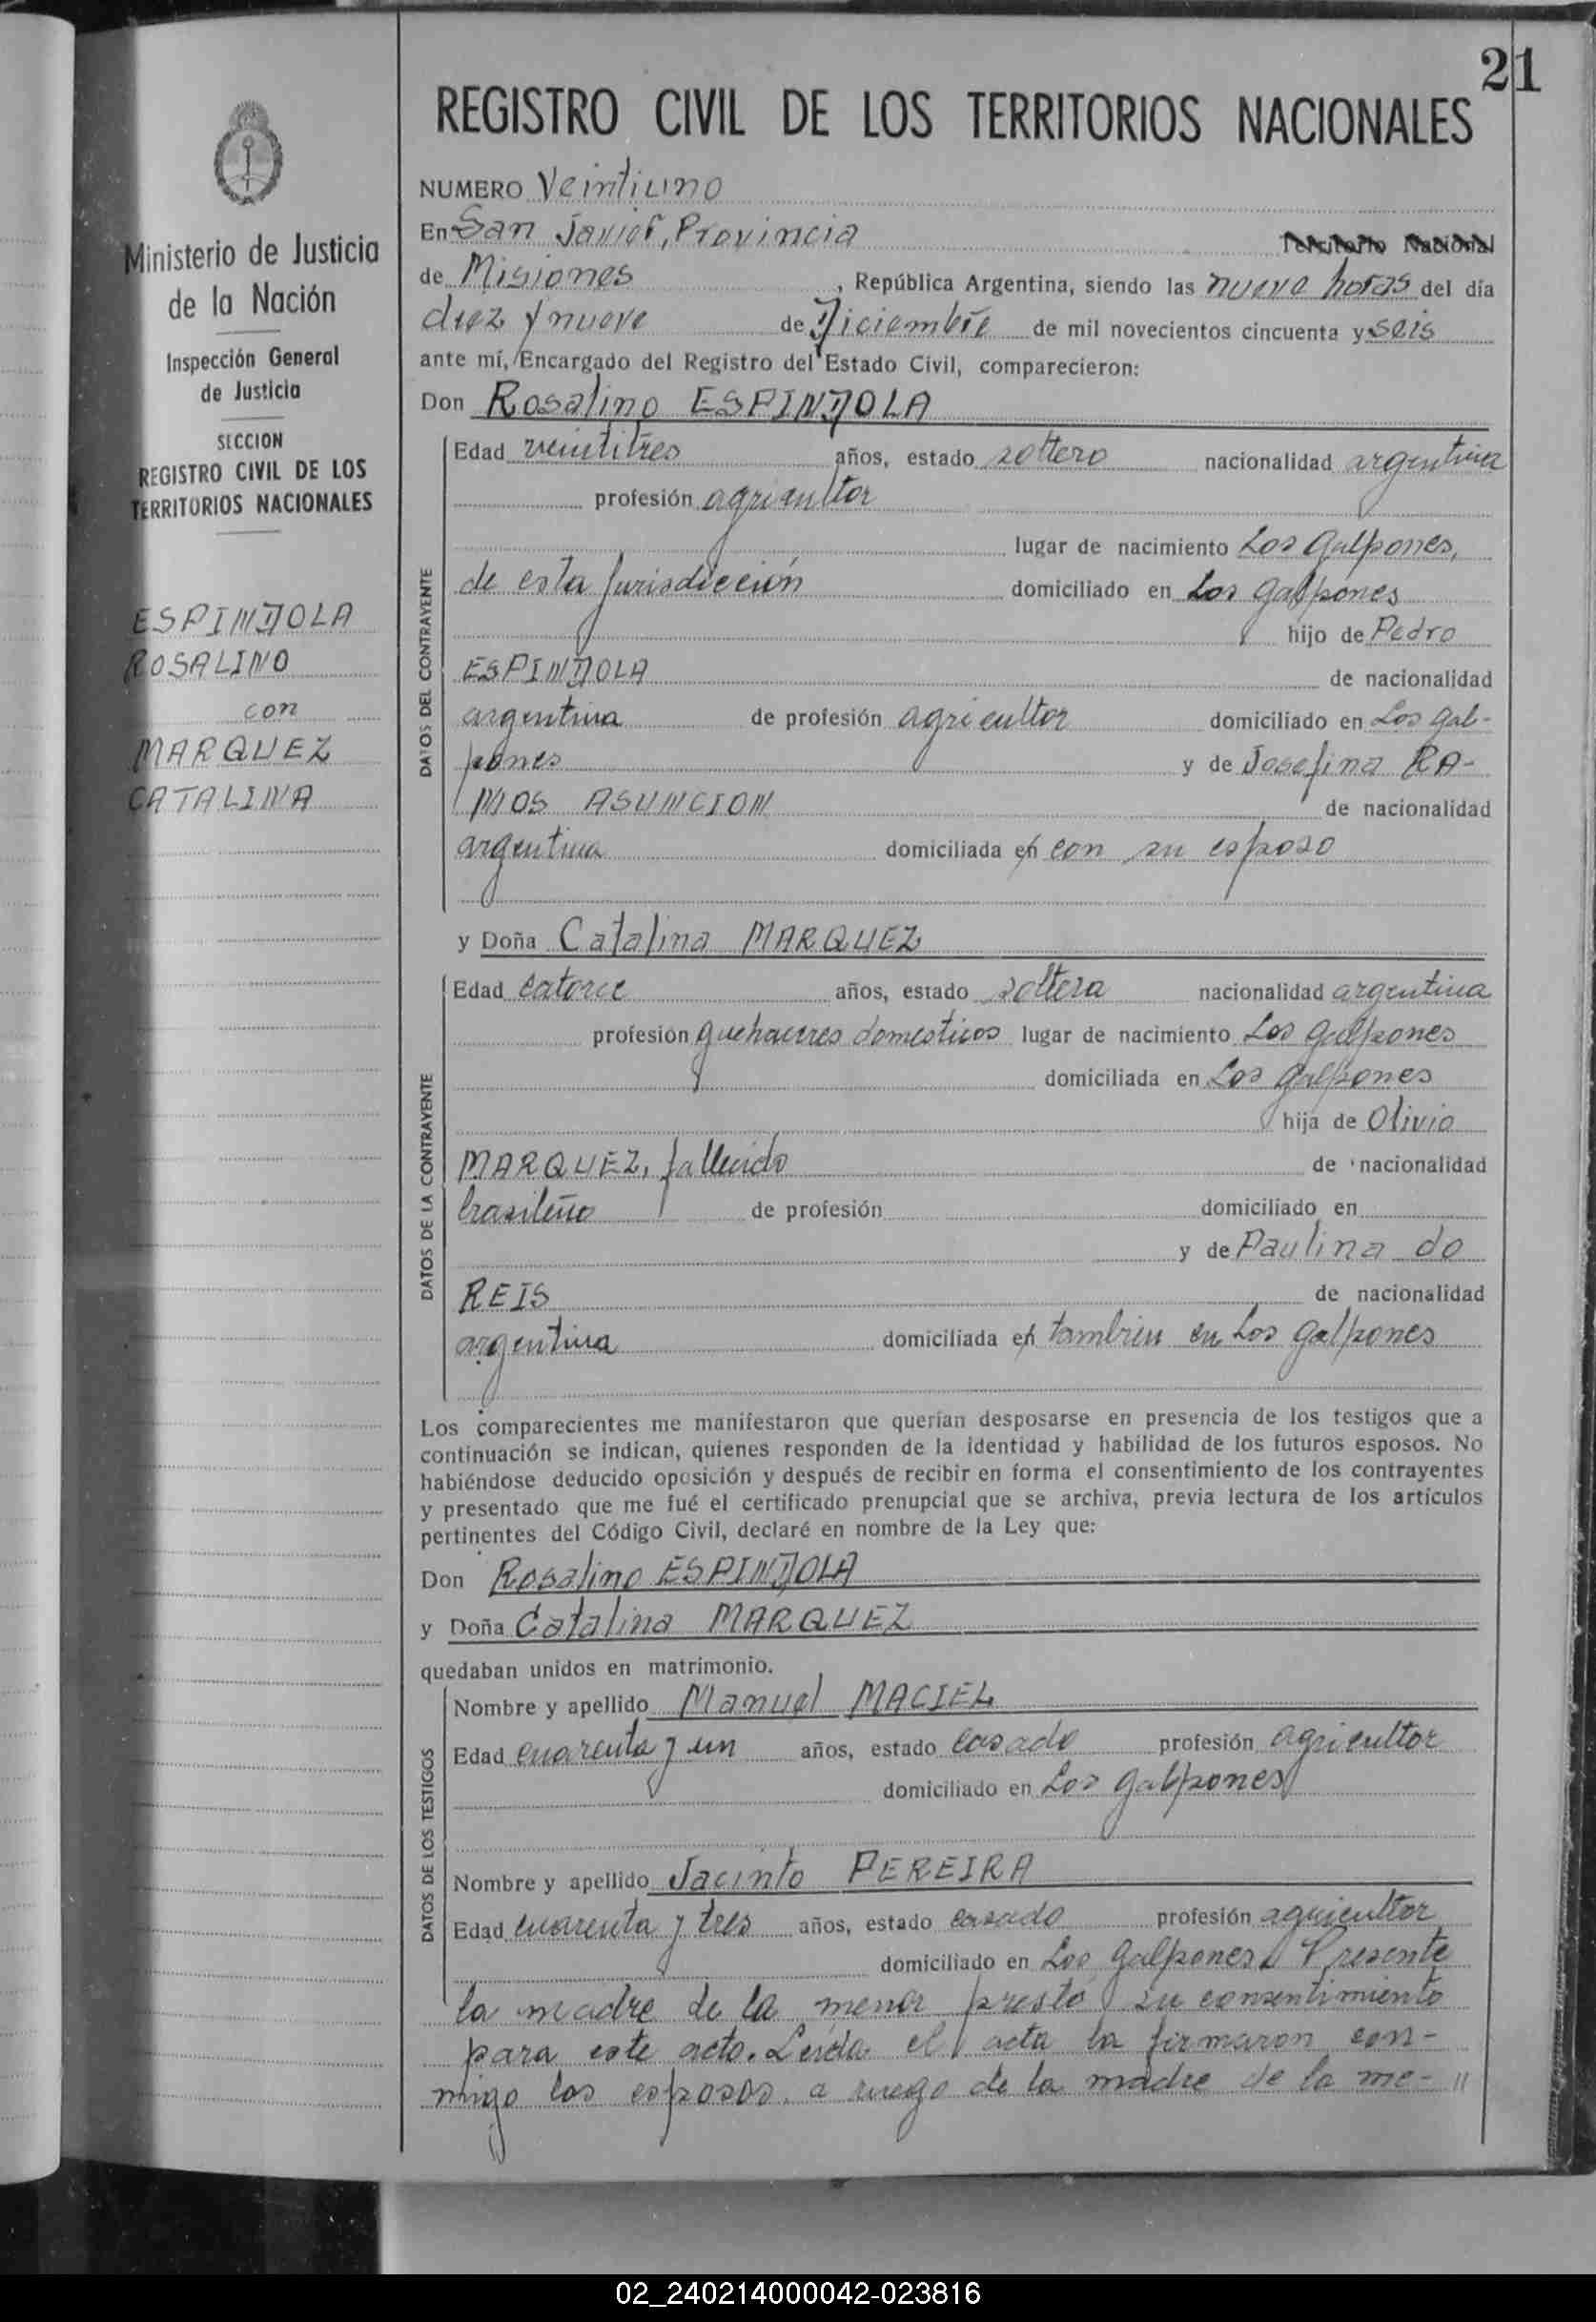 21
REGISTRO CIVIL DE LOS TERRITORIOS NACIONALES
Ministerio de Justicia
de la Nación
Inspección General
de Justicia
SECCION
REGISTRO CIVIL DE LOS
TERRITORIOS NACIONALES
ESPINDOLA
ROSALINO
con
MARQUEZ
CATALINA
NUMERO Veintiuno
En San Javier, Provincia Territorio Nacional
de Misiones, República Argentina, siendo las nueve horas del día
diez y nueve de Diciembre de mil novecientos cincuenta y seis
ante mí, Encargado del Registro del Estado Civil, comparecieron:
Don Rosalino ESPINDOLA
DATOS DEL CONTRAYENTE
Edad veintitres años, estado soltero nacionalidad argentina
profesión agricultor
lugar de nacimiento Los Galpones,
de esta Jurisdicción domiciliado en Los Galpones
hijo de Pedro
ESPINDOLA de nacionalidad
argentina de profesión agricultor domiciliado en Los Gal-
pones y de Josefina RA-
MOS ASUNCION de nacionalidad
argentina domiciliada en con su esposo
y Doña Catalina MARQUEZ
DATOS DE LA CONTRAYENTE
Edad catorce años, estado soltera nacionalidad argentina
profesión quehaceres domesticos lugar de nacimiento Los Galpones
domiciliada en Los Galpones
hija de Olivio
MARQUEZ, fallecido de nacionalidad
brasileño de profesión domiciliado en
y de Paulina do
REIS de nacionalidad
argentina domiciliada en tambien en Los Galpones
Los comparecientes me manifestaron que querían desposarse en presencia de los testigos que a
continuación se indican, quienes responden de la identidad y habilidad de los futuros esposos. No
habiéndose deducido oposición y después de recibir en forma el consentimiento de los contrayentes
y presentado que me fué el certificado prenupcial que se archiva, previa lectura de los artículos
pertinentes del Código Civil, declaré en nombre de la Ley que:
Don Rosalino ESPINDOLA
y Doña Catalina MARQUEZ
quedaban unidos en matrimonio.
DATOS DE LOS TESTIGOS
Nombre y apellido Manuel MACIEL
Edad cuarenta y un años, estado casado profesión agricultor
domiciliado en Los Galpones
Nombre y apellido Jacinto PEREIRA
Edad cuarenta y tres años, estado casado profesión agricultor
domiciliado en Los Galpones. Presente
la madre de la menor prestó su consentimiento
para este acto. Leída el acta la firmaron con-
migo los esposos, a ruego de la madre de la me- //
02_240214000042-023816